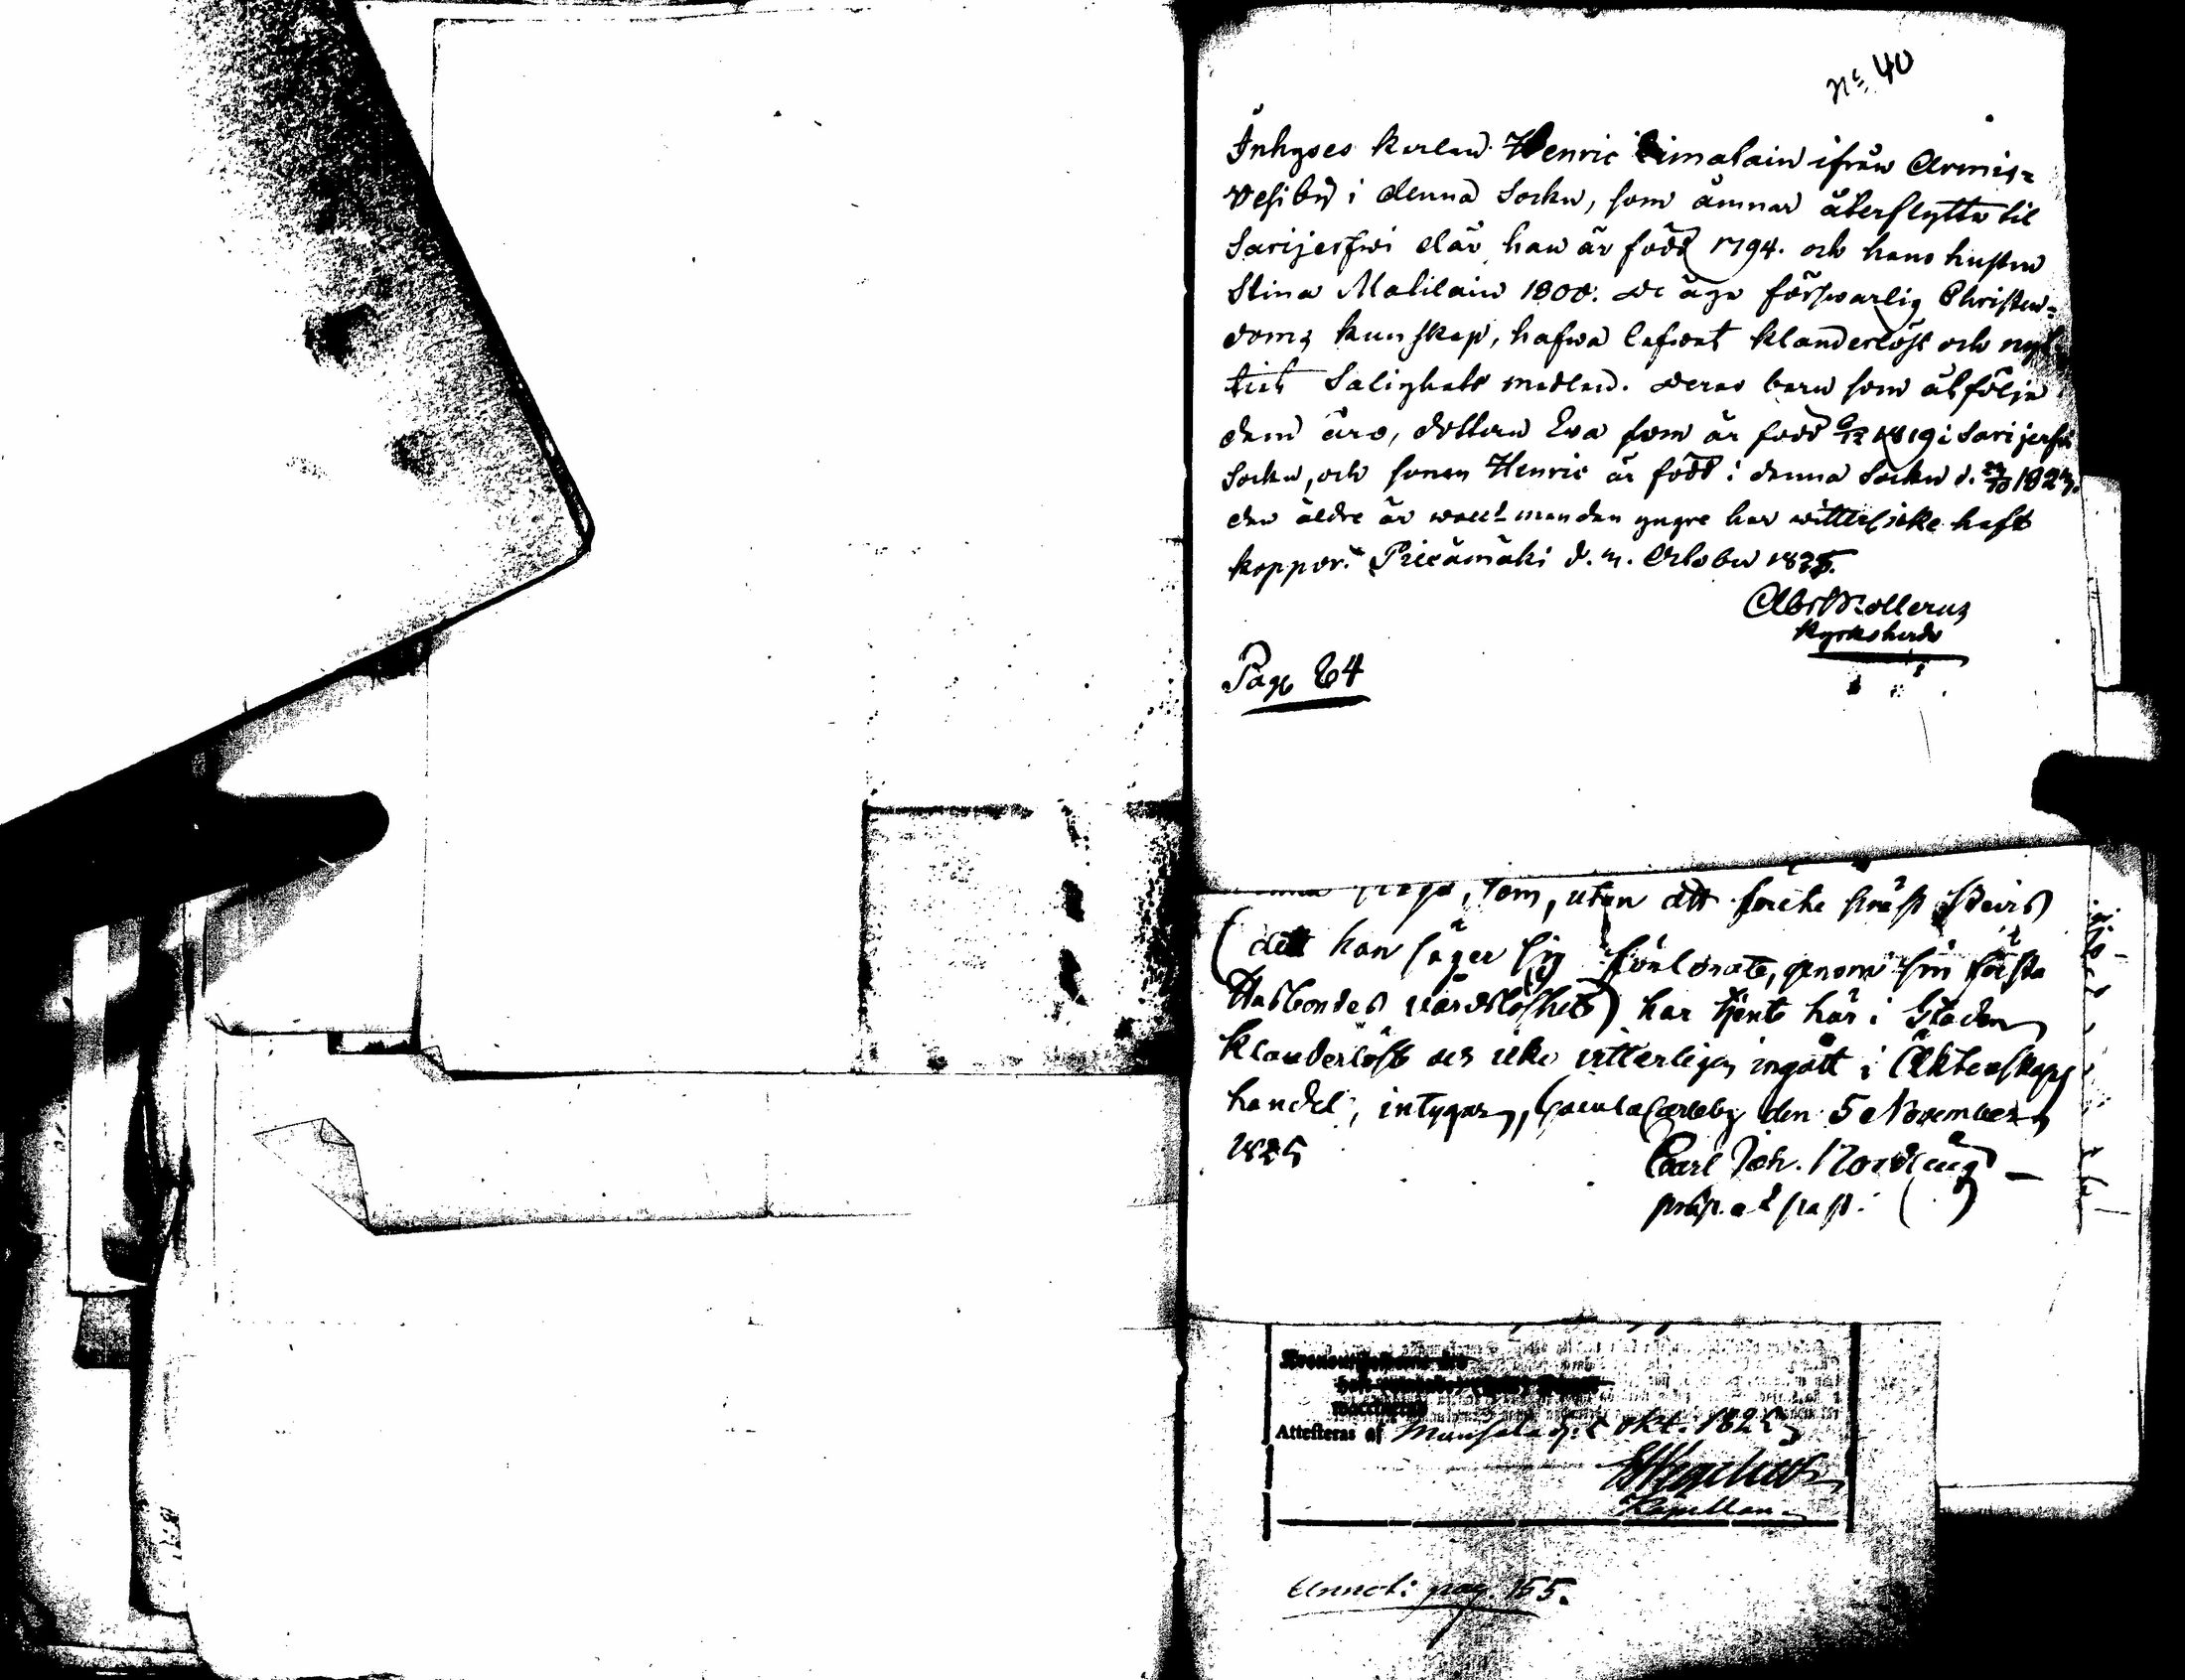 No 40
Inhyses karlen Henric Limatain ifrån Armis=
vesi by i denna Sockn, som ämnar återflytta til
Sarijerfwi där han är född 1794. och hans hustru
Stina Matilain 1800. De äga förswarlig Christen=
doms kunskap, hafwa lefwat klanderlöst och nyt
tiat Salighets medlen. Deras barn som åtfölja
dem äro, dottren Eva som är född 1819 i Sarijerfwi
Sockn, och sonen Henric är född i denna Sockn d. 1823.
den äldre är men den yngre har witterl. icke haft
koppor. Piexämäki d. October 1825.
Kyrkoherde
Pag 64
som, uten att
(dett han säger sig förlorats, genom sin första
Husbondes värdslöshet) har tjent här i Staden
klanderlöst och icke vitterligen ingått i Äktenskaps
handel, intygar, Gamlacarleby den 5 November
1825
Carl Joh. Nordlung
præp. et past.
Attesteras af Munsala d. okt. 1825
Kapellan
Annot: pag. 155.